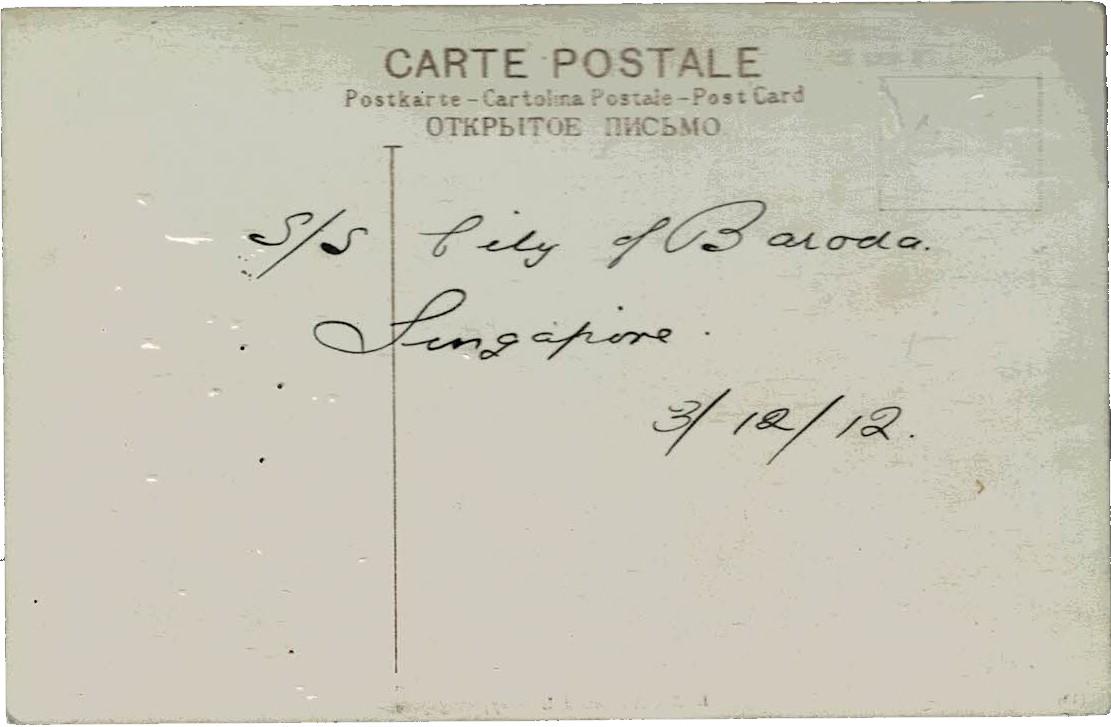 CARTE POSTALE
Postkarte - Cartolina Postale - Post Card
ОТКРЫТОЕ ПИСЬМО
S/S City of Baroda.
Singapore.
3/12/12.